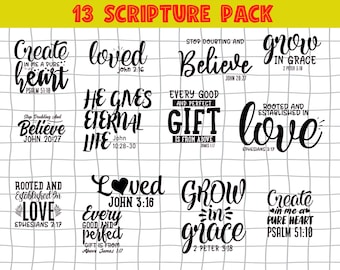 13 SCRIPTURE PACK
Create
IN ME A PURE
heart
PSALM 51:10
loved
John 3:16
STOP DOUBTING AND
Believe
JOHN 20:27
grow
IN GRACE
2 PETER 3:18
Stop Doubting And
Believe
JOHN 20:27
HE GIVES
ETERNAL
LIFE
John
10:28-30
EVERY GOOD
AND PERFECT
GIFT
IS FROM ABOVE
JAMES 1:17
ROOTED AND
ESTABLISHED IN
love
EPHESIANS 3:17
ROOTED AND
Established IN
LOVE
EPHESIANS 3:17
Loved
JOHN 3:16
Every
Good and
perfect
GIFT IS FROM
Above James 1:17
GROW
in
grace
2 PETER 3:18
Create
in me a
PURE HEART
PSALM 51:10